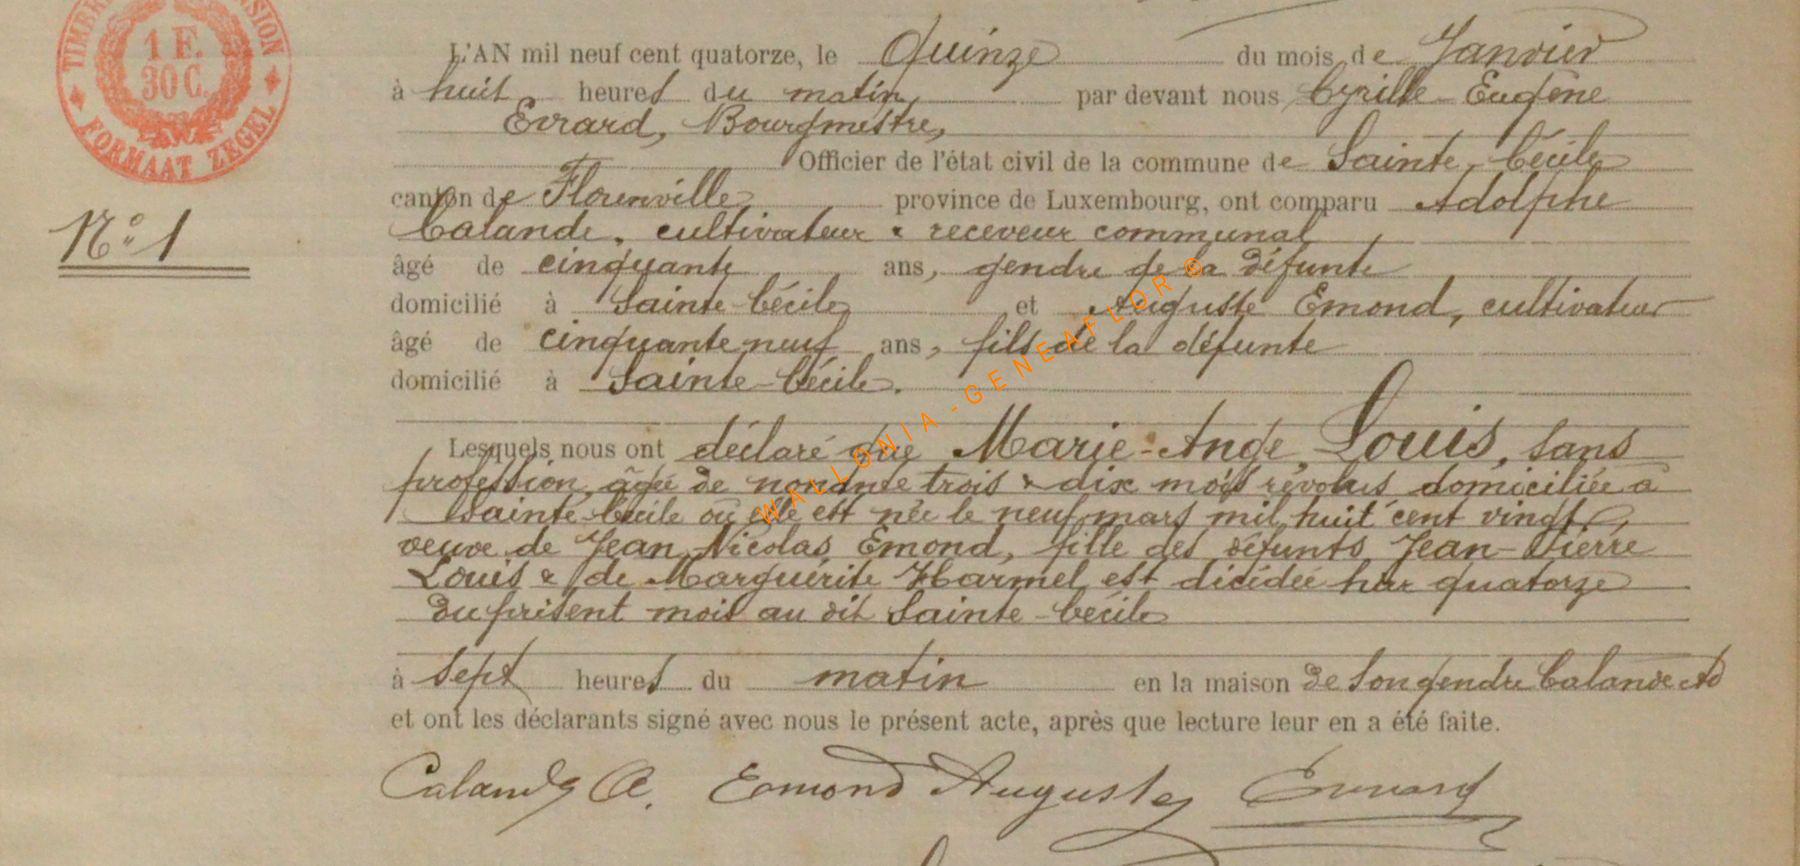 TIMBRE DIMENSION
1 F.
30 C.
FORMAAT ZEGEL
N° 1
L'AN mil neuf cent quatorze, le Quinze du mois de Janvier
à huit heures du matin, par devant nous Cyrille-Eugène
Evrard, Bourgmestre,
Officier de l'état civil de la commune de Sainte-Cécile
canton de Florenville province de Luxembourg, ont comparu Adolphe
Calande, cultivateur & receveur communal
âgé de cinquante ans, gendre de la défunte
domicilié à Sainte-Cécile et Auguste Emond, cultivateur
âgé de cinquante neuf ans, fils de la défunte
domicilié à Sainte-Cécile.
Lesquels nous ont déclaré que Marie-Ange Louis, sans
profession, âgée de nonante trois & dix mois révolus domiciliée à
Sainte-Cécile où elle est née le neuf mars mil huit cent vingt,
veuve de Jean Nicolas Emond, fille des défunts Jean-Pierre
Louis & de Marguérite Harmel est décédée hier quatorze
du présent mois au dit Sainte-Cécile
à sept heures du matin en la maison de son gendre Calande Ad
et ont les déclarants signé avec nous le présent acte, après que lecture leur en a été faite.
Calande A. Emond Auguste Evrard
WALLONIA - GENEAFLOR ®